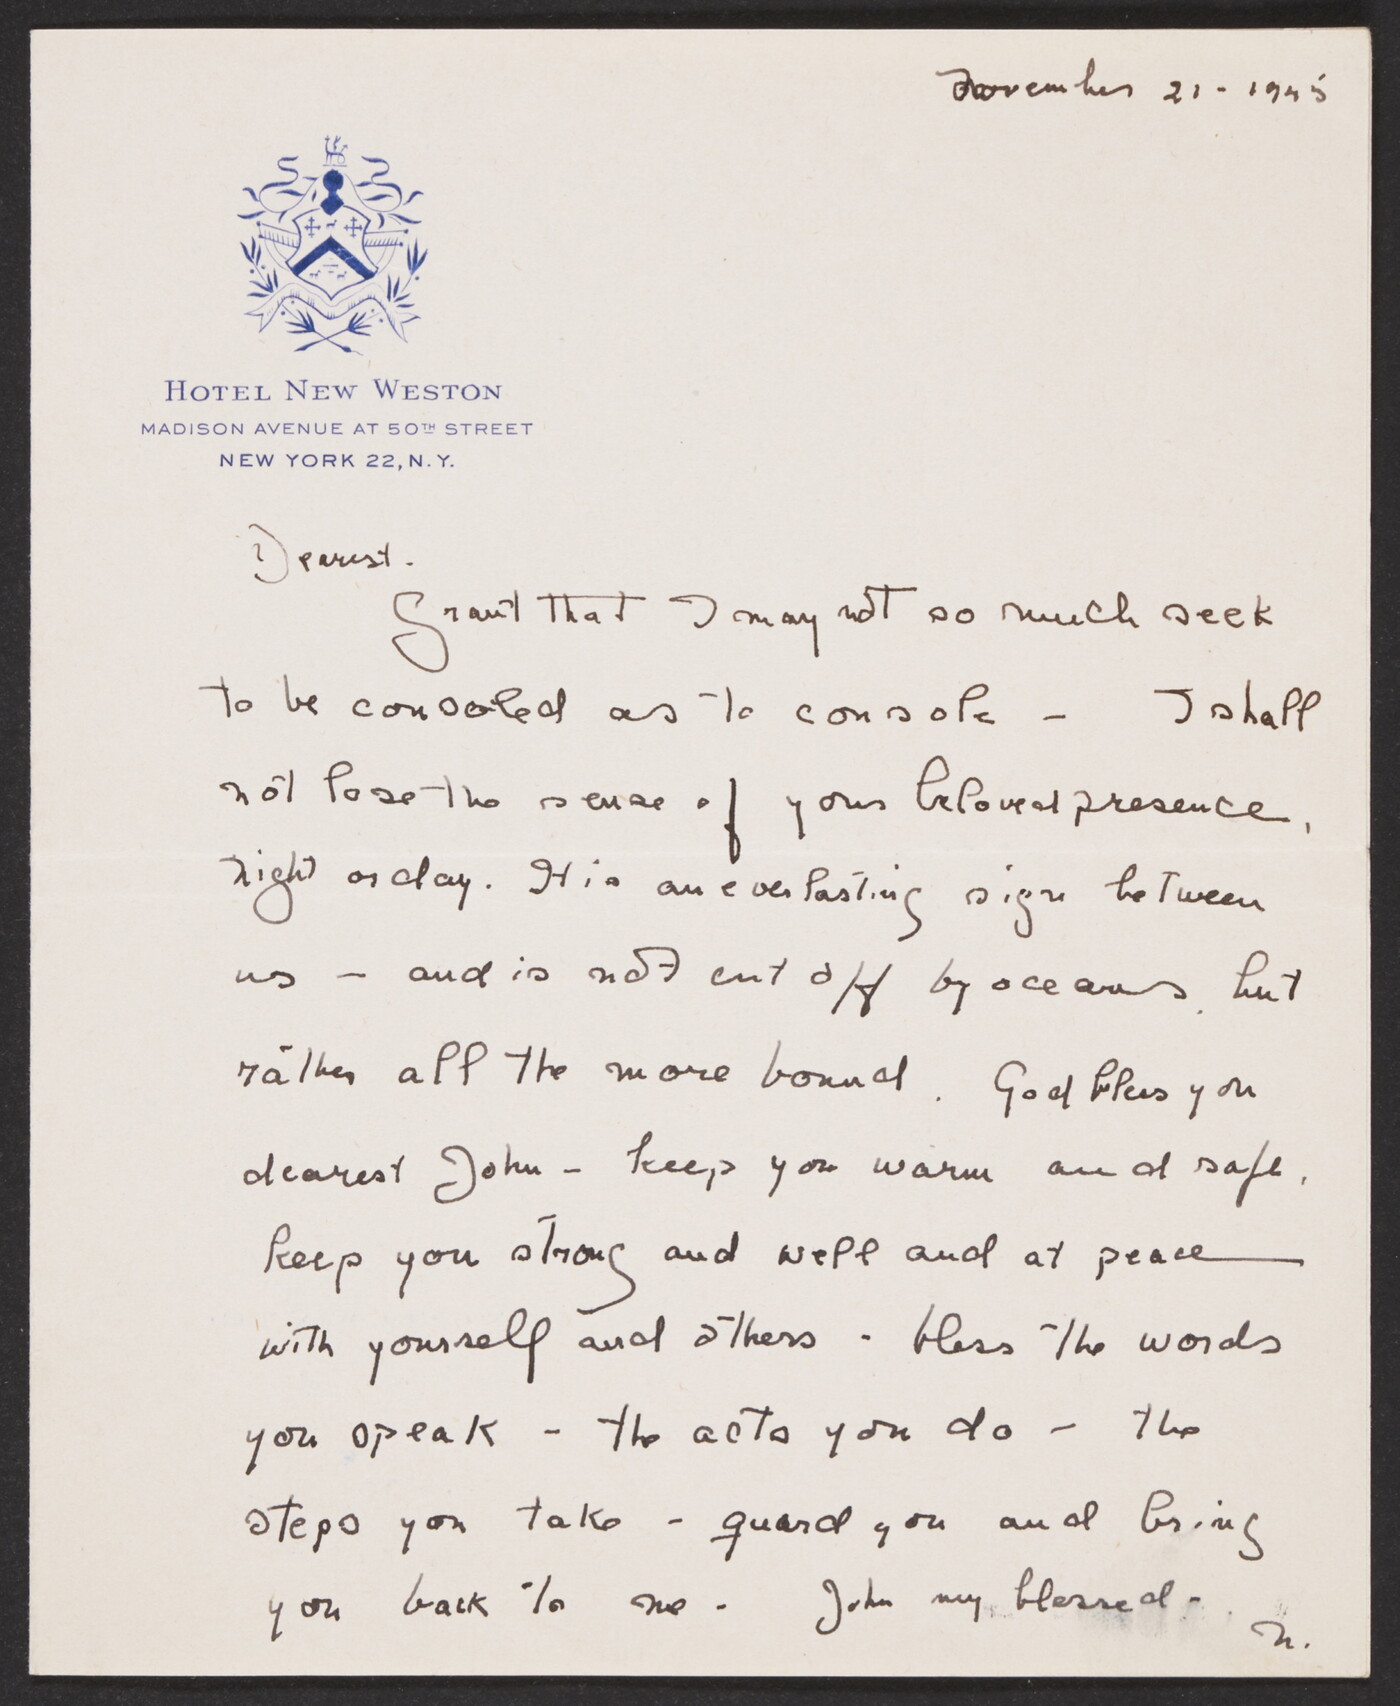 November 21 - 1945
HOTEL NEW WESTON
MADISON AVENUE AT 50TH STREET
NEW YORK 22, N.Y.
Dearest.
Grant that I may not so much seek
to be consoled as to console - I shall
not lose the sense of your beloved presence,
night or day. It is an everlasting sign between
us - and is not cut off by oceans, but
rather all the more bound. God bless you
dearest John - keep you warm and safe,
keep you strong and well and at peace
with yourself and others - bless the words
you speak - the acts you do - the
steps you take - guard you and bring
you back to me - John my blessed -
N.